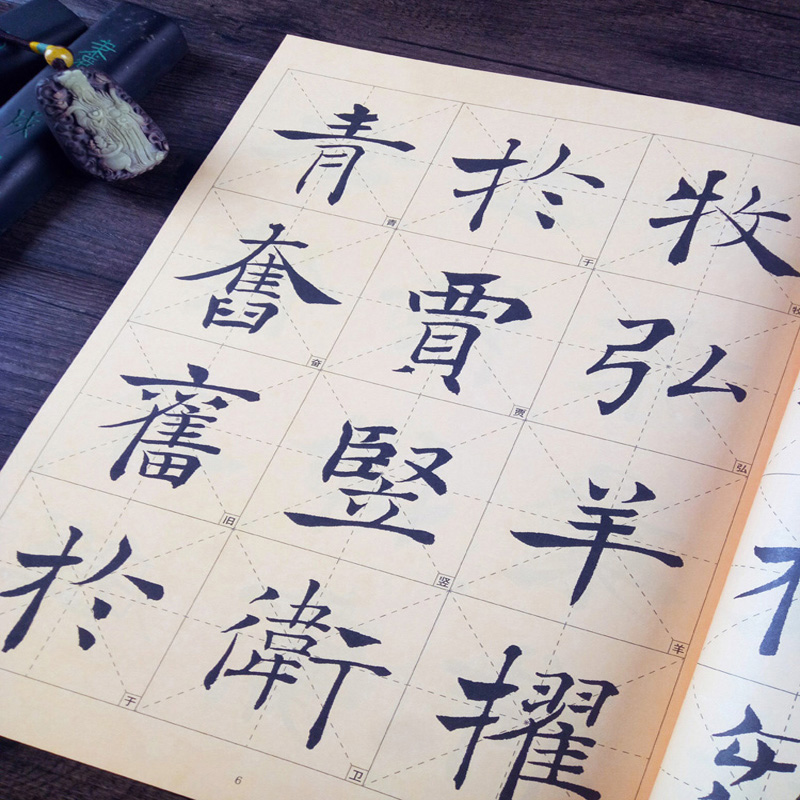 牧弘羊擢
於賈豎衛
青奮舊於
牧弘羊
于贾竖卫
青奋旧于
6